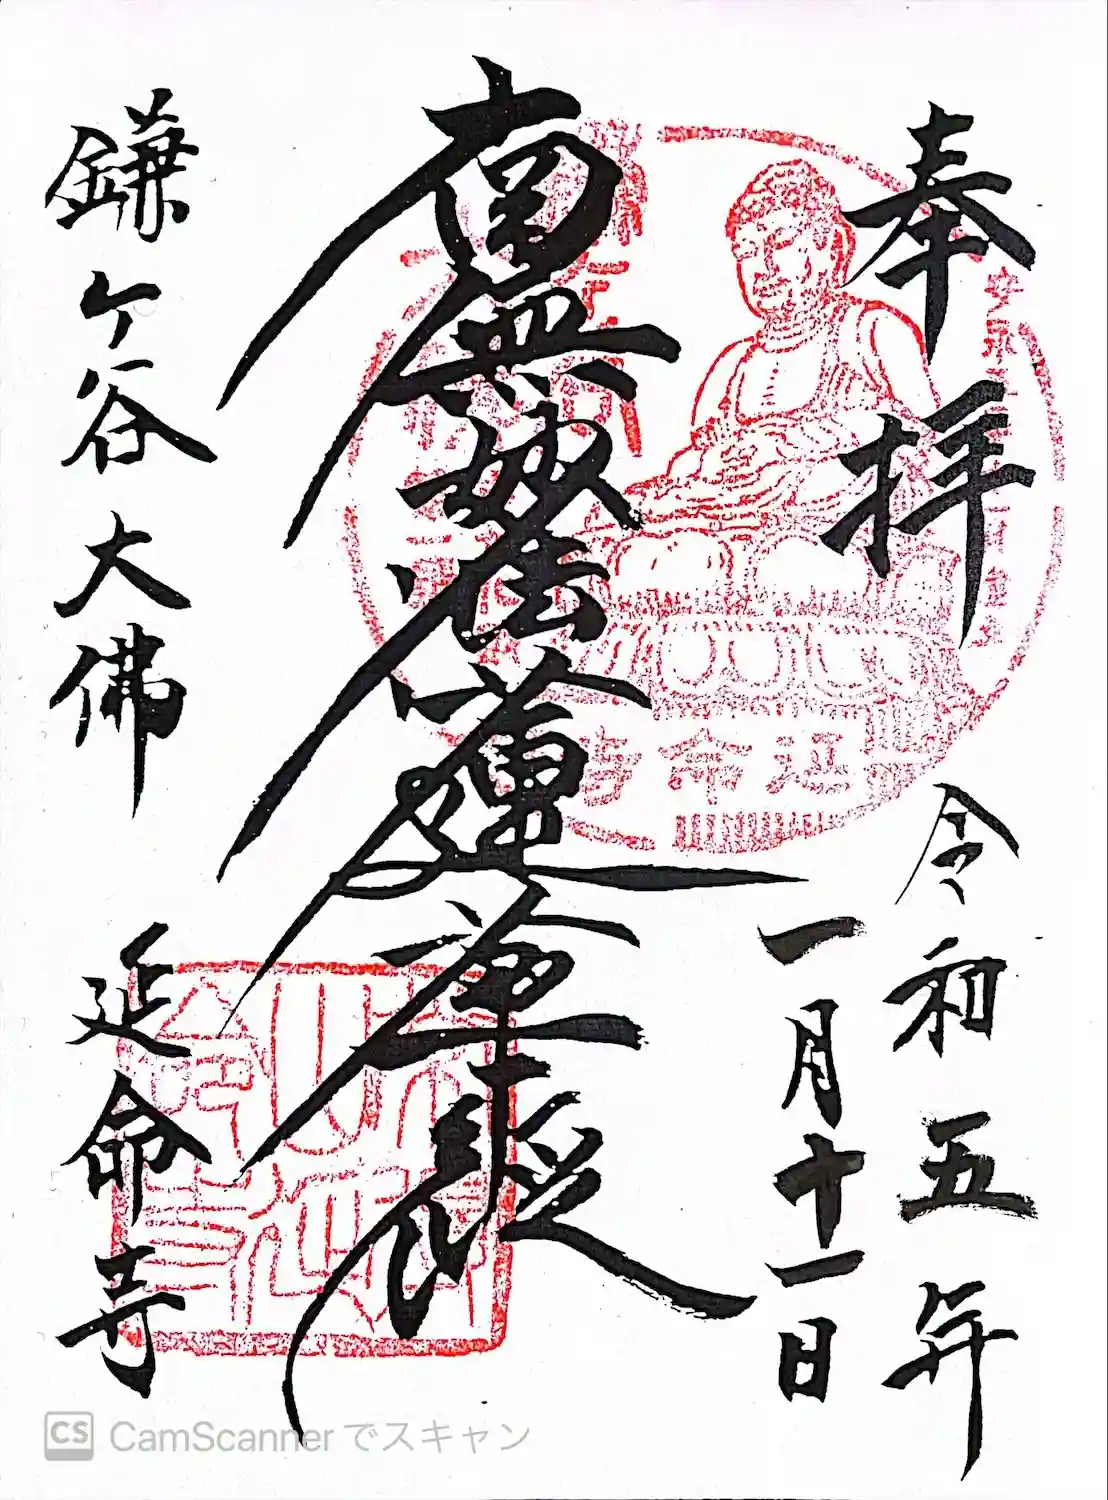 奉拝
令和五年
一月十一日
南無妙法蓮華経
鎌ヶ谷大佛
延命寺
延命寺
CS CamScanner でスキャン